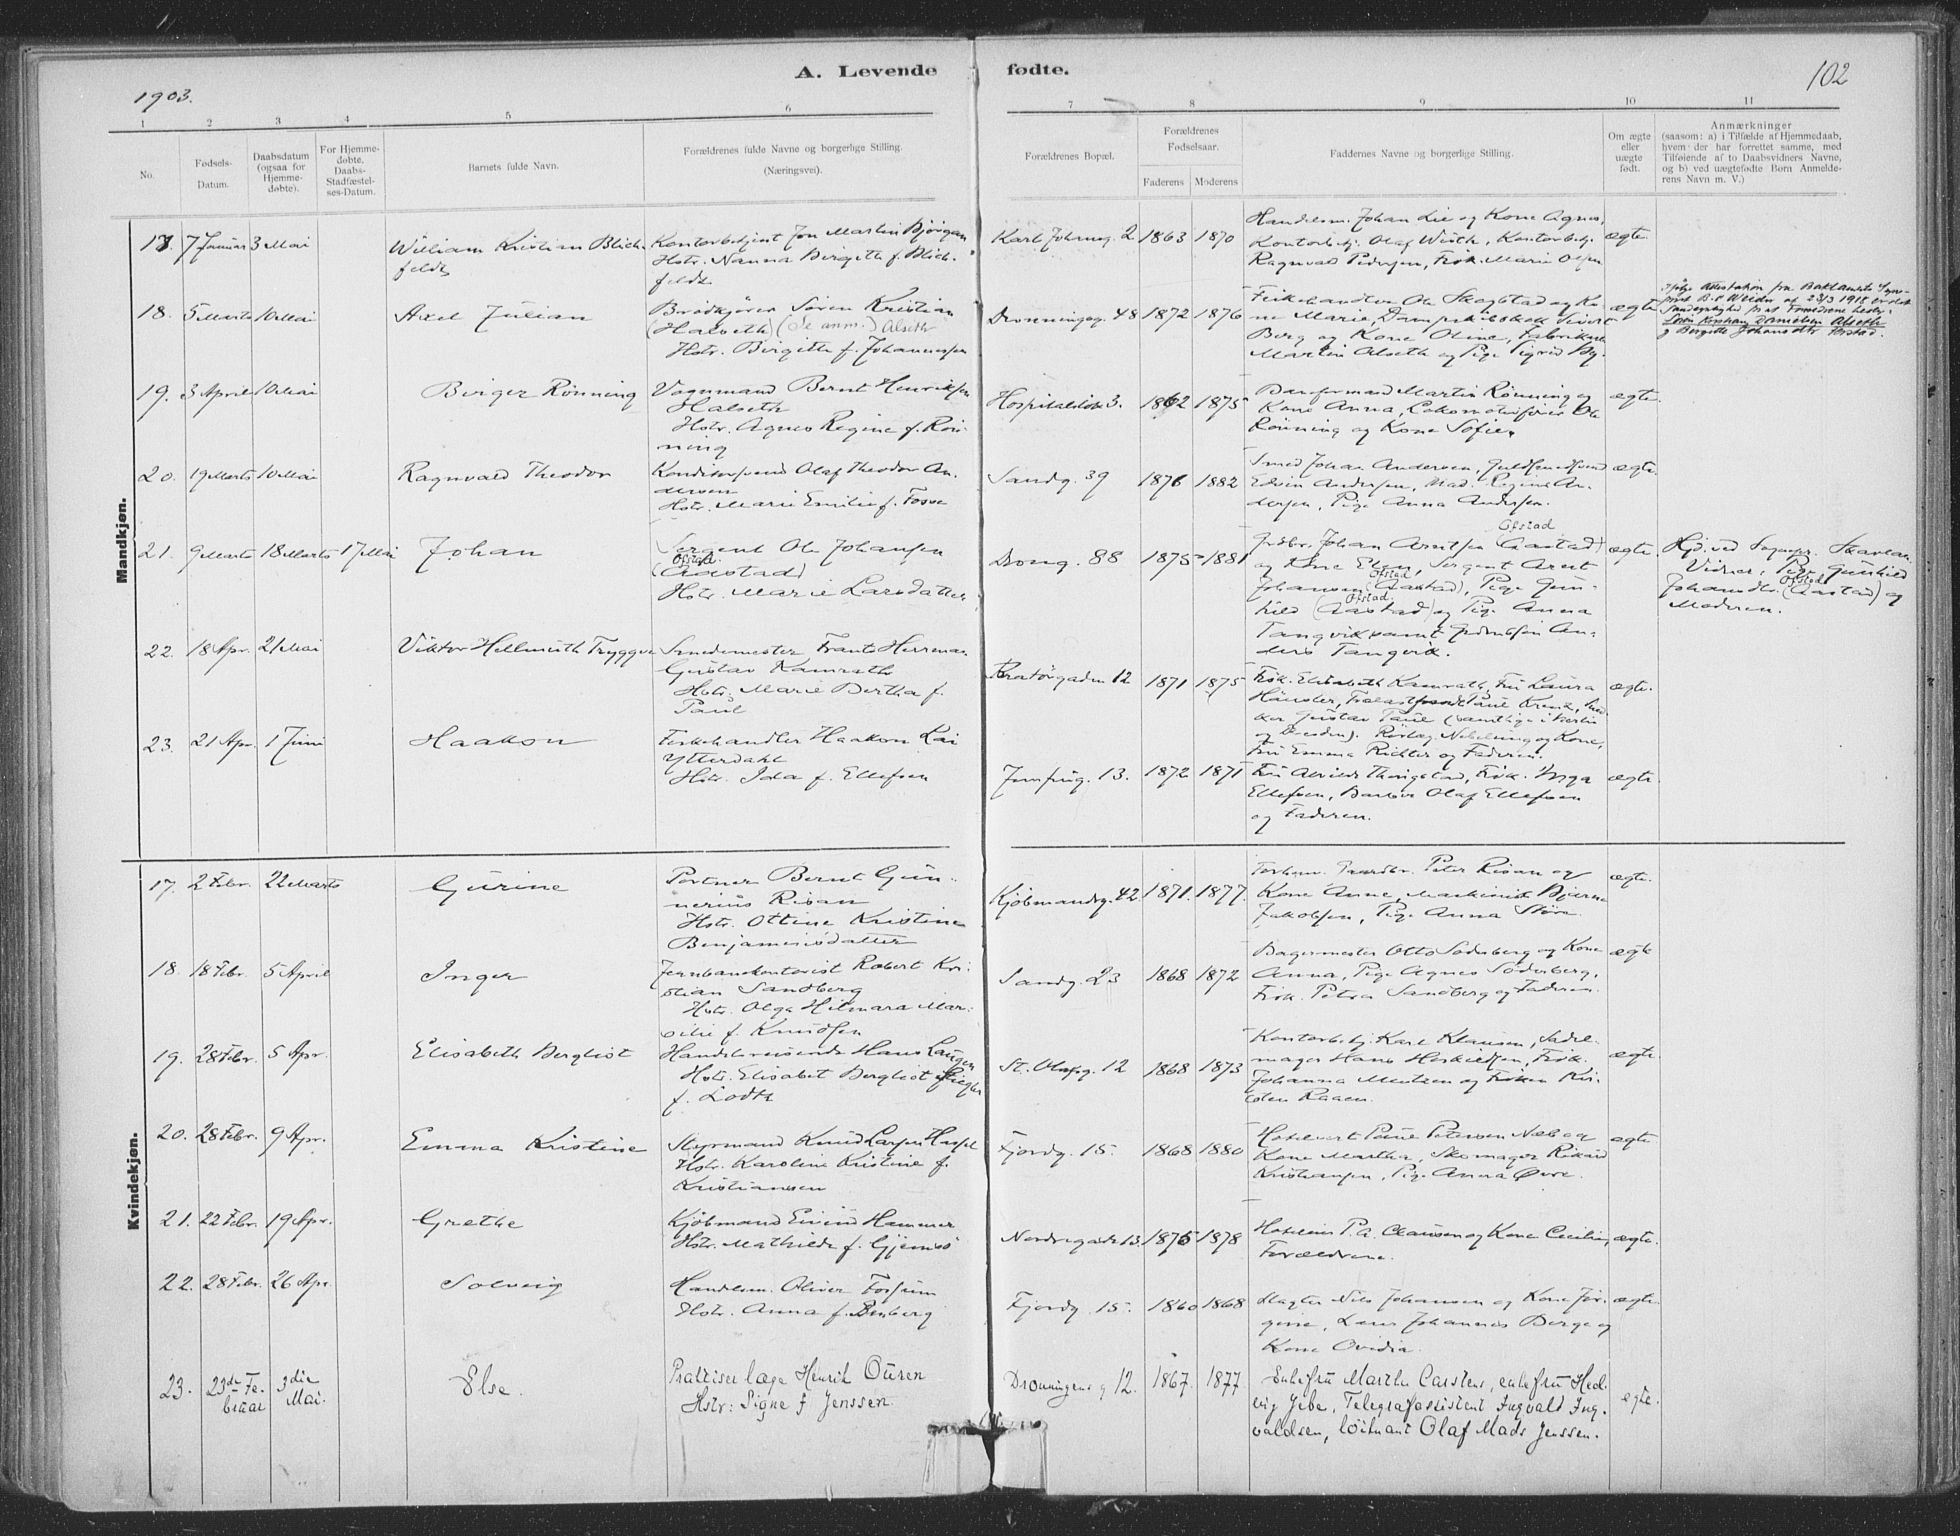 A. Levende fødte.
1903.
102
1 2 3 4 5 6 7 8 9 10 11
No.
Fødsels-Datum.
Daabsdatum (ogsaa for Hjemme-døbte).
For Hjemme-døbte, Daabs-Stadfæstel-ses-Datum.
Barnets fulde Navn.
Forældrenes fulde Navne og borgerlige Stilling.
(Næringsvei).
Forældrenes Bopæl.
Forældrenes Fødselsaar.
Faderens Moderens
Faddernes Navne og borgerlige Stilling.
Om ægte eller uægte født.
Anmærkninger
(saasom: a) i Tilfælde af Hjemmedaab,
hvem der har forrettet samme, med
Tilføiende af to Daabsvidners Navne,
og b) ved uægtefødte Børn Anmelde-
rens Navn m. V.)
Mandkjøn.
17. 7 Januar 3 Mai
William Kristian Blich
feldt
Kontorbetjent Jon Martin Bjørgan
Hstr. Nanna Birgith f. Blich-
feldt
Karl Johansg. 2 1863 1870
Handelsm. Johan Lie og Kone Agnes,
Kontorbetj. Olaf Wirth, Kontorbetj.
Ragnvald Pedersen, Frøk. Marie Olsen
ægte
18. 5 Marts 10 Mai
Axel Julian
Brødkjører Søren Kristian
(Halseth) (Se anm.) Alseth
Hstr. Birgitte f. Johannessen
Dronningsg. 48 1872 1876
Fiskehandler Ole Skagstad og Ko-
ne Marie, Sivert
Berg og Kone Oline,
Martin Alseth og Pige Sigrid
ægte
Ifølge Attestation fra
23/3 1915 er det
Søren Kristian Danielsen Alseth
og Birgitte Johansdtr.
19. 3 April 10 Mai
Birger Rønning
Vognmand Bernt Henriksen
Halseth
Hstr. Agnes Regine f. Røn-
ning
Hospitalsløk. 3. 1862 1875
Martin Rønning og
Kone Anna, Lokomotivfører Ole
Rønning og Kone Sofie.
ægte.
20. 19 Marts 10 Mai
Ragnvald Theodor
Konditorsvend Olaf Theodor An-
dersen
Hstr. Marie Emilie f. Fosse
Sandg. 39 1876 1882
Smed Johan Andersen, Guldsmedsvend
Edvin Andersen, Mad. Regine An-
dersen, Pige Anna Andersen.
ægte.
21. 9 Marts 18 Marts 17 Mai
Johan
Sergent Ole Johansen
Ofstad
(Aastad)
Hstr. Marie Larsdatter
Drong. 88 1875 1881
Ofstad
Grdbr. Johan Arntsen (Aastad)
og Kone Elen, Sergent Arnt
Ofstad
Johansen (Aastad), Pige Gun-
Ofstad
hild (Aastad) og Pige Anna
Tangvik samt An-
ders Tangvik.
ægte.
Hjd. ved Sognepr. Skavlan
Vidner, Pige Gunhild
Ofstad
Johansdtr. (Aastad) og
Moderen.
22. 18 Apr. 21 Mai
Viktor Hellmuth Tryggve
Smedemester Frants Herman
Gustav Kamrath
Hstr. Marie Bertha f.
Paul
Bratørgaden 12 1871 1875
Frøk. Elisabeth Kamrath, Fru Laura
Hänsler,
Gustav Paul (samtlige i Berlin
og Dresden). Nebelung og Kone,
Fru Emma Richter og Faderen.
ægte.
23. 21 Apr. 1 Juni
Haakon
Fiskehandler Haakon Kai
Ytterdahl
Hstr. Ida f. Ellefsen
Jomfrug. 13. 1872 1871
Fru Alvilde Thorigstad, Frøk. Inga
Ellefsen, Barber Olaf Ellefsen
og Faderen.
ægte.
Kvindekjøn.
17. 2 Febr. 22 Marts
Gurine
Portner Bernt Gun-
nerius Risan
Hstr. Ottine Kristine
Benjaminsdatter
Kjøbmandsg. 42. 1871. 1877.
Peter Risan og
Kone Anne, Maskinist Bjarne
Jakobsen, Pige Anna Støre.
ægte.
18. 18 Febr. 5 April
Inger
Jernbanekontorist Robert Kri-
stian Sandberg
Hstr. Olga Hilmara Mar-
silie f. Knudsen
Sandg. 23 1868 1872
Bagermester Otto Søderberg og Kone
Anna, Pige Agnes Söderberg,
Frøk. Petra Sandberg og Faderen.
ægte
19. 28 Febr. 5 Apr.
Elisabeth Bergliot
Handelsreisende Hans Laurgen
Hstr. Elisabet Bergliot
f. Lodtz
St. Olafsg. 12 1868 1873
Kontorbetj. Karl Klausen, Sadel-
mager Hans Hoskildsen, Frøk.
Johanna Madsen og Frøken Kir-
sten Raaen.
ægte.
20. 28 Febr. 9 Apr.
Emma Kristine
Styrmand Knud Larsen Hassel
Hstr. Karoline Kristine f.
Kristiansen
Fjordg. 15. 1868 1880
Hotelvert Paul Petersen Næb og
Kone Martha, Skomager Rikard
Kristiansen, Pige Anna Øvre.
ægte
21. 22 Febr. 19 Apr.
Grethe
Kjøbmand Eivind Hammer
Hstr. Mathilde f. Gjemsø
Nordregade 13. 1875 1878
P. A. Clausen og Kone Cecilie,
Forældrene.
ægte.
22. 28 Febr. 26 Apr.
Solveig
Handlsm. Oliver Fossum
Hstr. Anna f.
Fjordg. 15. 1860 1868
Slagter Nils Johansen og Kone Jør-
gine, Lars Johannes Berge og
Kone Ovidia.
ægte.
23. 23de Fe-
bruar
3die
Mai.
Else.
Praktiser læge Henrik Ouren
Hstr: Signe f Jenssen
Dronningens g 12. 1867. 1877
Enkefru Martha Carstens, enkefru Hed-
vig Jebe, Telegrafassistent Ingvald Ing-
valdsen, løitnant Olaf Mads Jenssen.
ægte.